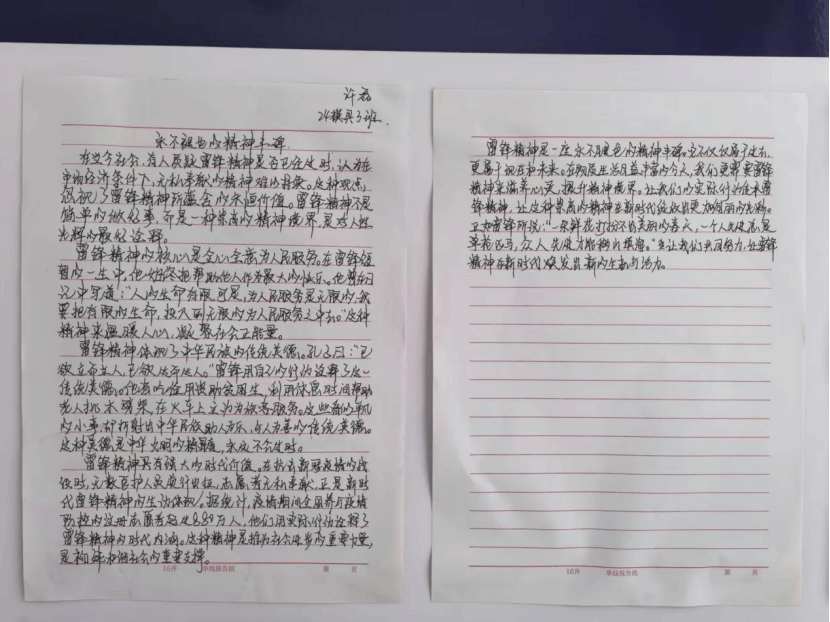 许磊
24模具3班.
永不褪色的精神丰碑
在当今社会,有人质疑雷锋精神是否已经过时,认为在
市场经济条件下,无私奉献的精神难以为继。这种观点,
忽视了雷锋精神所蕴含的永恒价值。雷锋精神不是
简单的做好事,而是一种崇高的精神境界,是对人性
光辉的最好诠释。
雷锋精神的核心是全心全意为人民服务。在雷锋短
暂的一生中,他始终把帮助他人作为最大的快乐。他曾在日
记中写道:"人的生命有限,可是,为人民服务是无限的,我
要把有限的生命,投入到无限的为人民服务之中去。"这种
精神来温暖人心,凝聚社会正能量。
雷锋精神体现了中华民族的传统美德。孔子曰:"己
欲立而立人,己欲达而达人。"雷锋用自己的行动诠释了这一
传统美德。他省吃俭用援助贫困生,利用休息时间帮助
老人挑水劈柴,在火车上主动为旅客服务。这些看似平凡
的小事,却折射出中华民族助人为乐,与人为善的传统美德。
这种美德是中华文明的精髓,永远不会过时。
雷锋精神具有强大的时代价值。在抗击新冠疫情的战
役时,无数医护人员逆行出征,志愿者无私奉献,正是新时
代雷锋精神的生动体现。据统计,疫情期间全国参与疫情
防控的注册志愿者超过889万人,他们用实际行动诠释了
雷锋精神的时代内涵。这种精神是推动社会进步的重要力量,
是和谐社会的重要支撑。
16开 单线报告纸 第 页
雷锋精神是一座永不褪色的精神丰碑。它不仅仅属于过去,
更属于现在和未来。在物质生活日益丰富的今天,我们更需要雷锋
精神来滋养心灵,提升精神境界。让我们以实际行动传承雷
锋精神,让这种崇高的精神在新时代绽放出更加绚丽的光彩。
正如雷锋所说:"一朵鲜花打扮不出美丽的春天,一个人先进总是
单枪匹马,众人先进才能移山填海。"让我们共同努力,让雷锋
精神在新时代焕发出新的生机与活力。
16开 单线报告纸 第 页